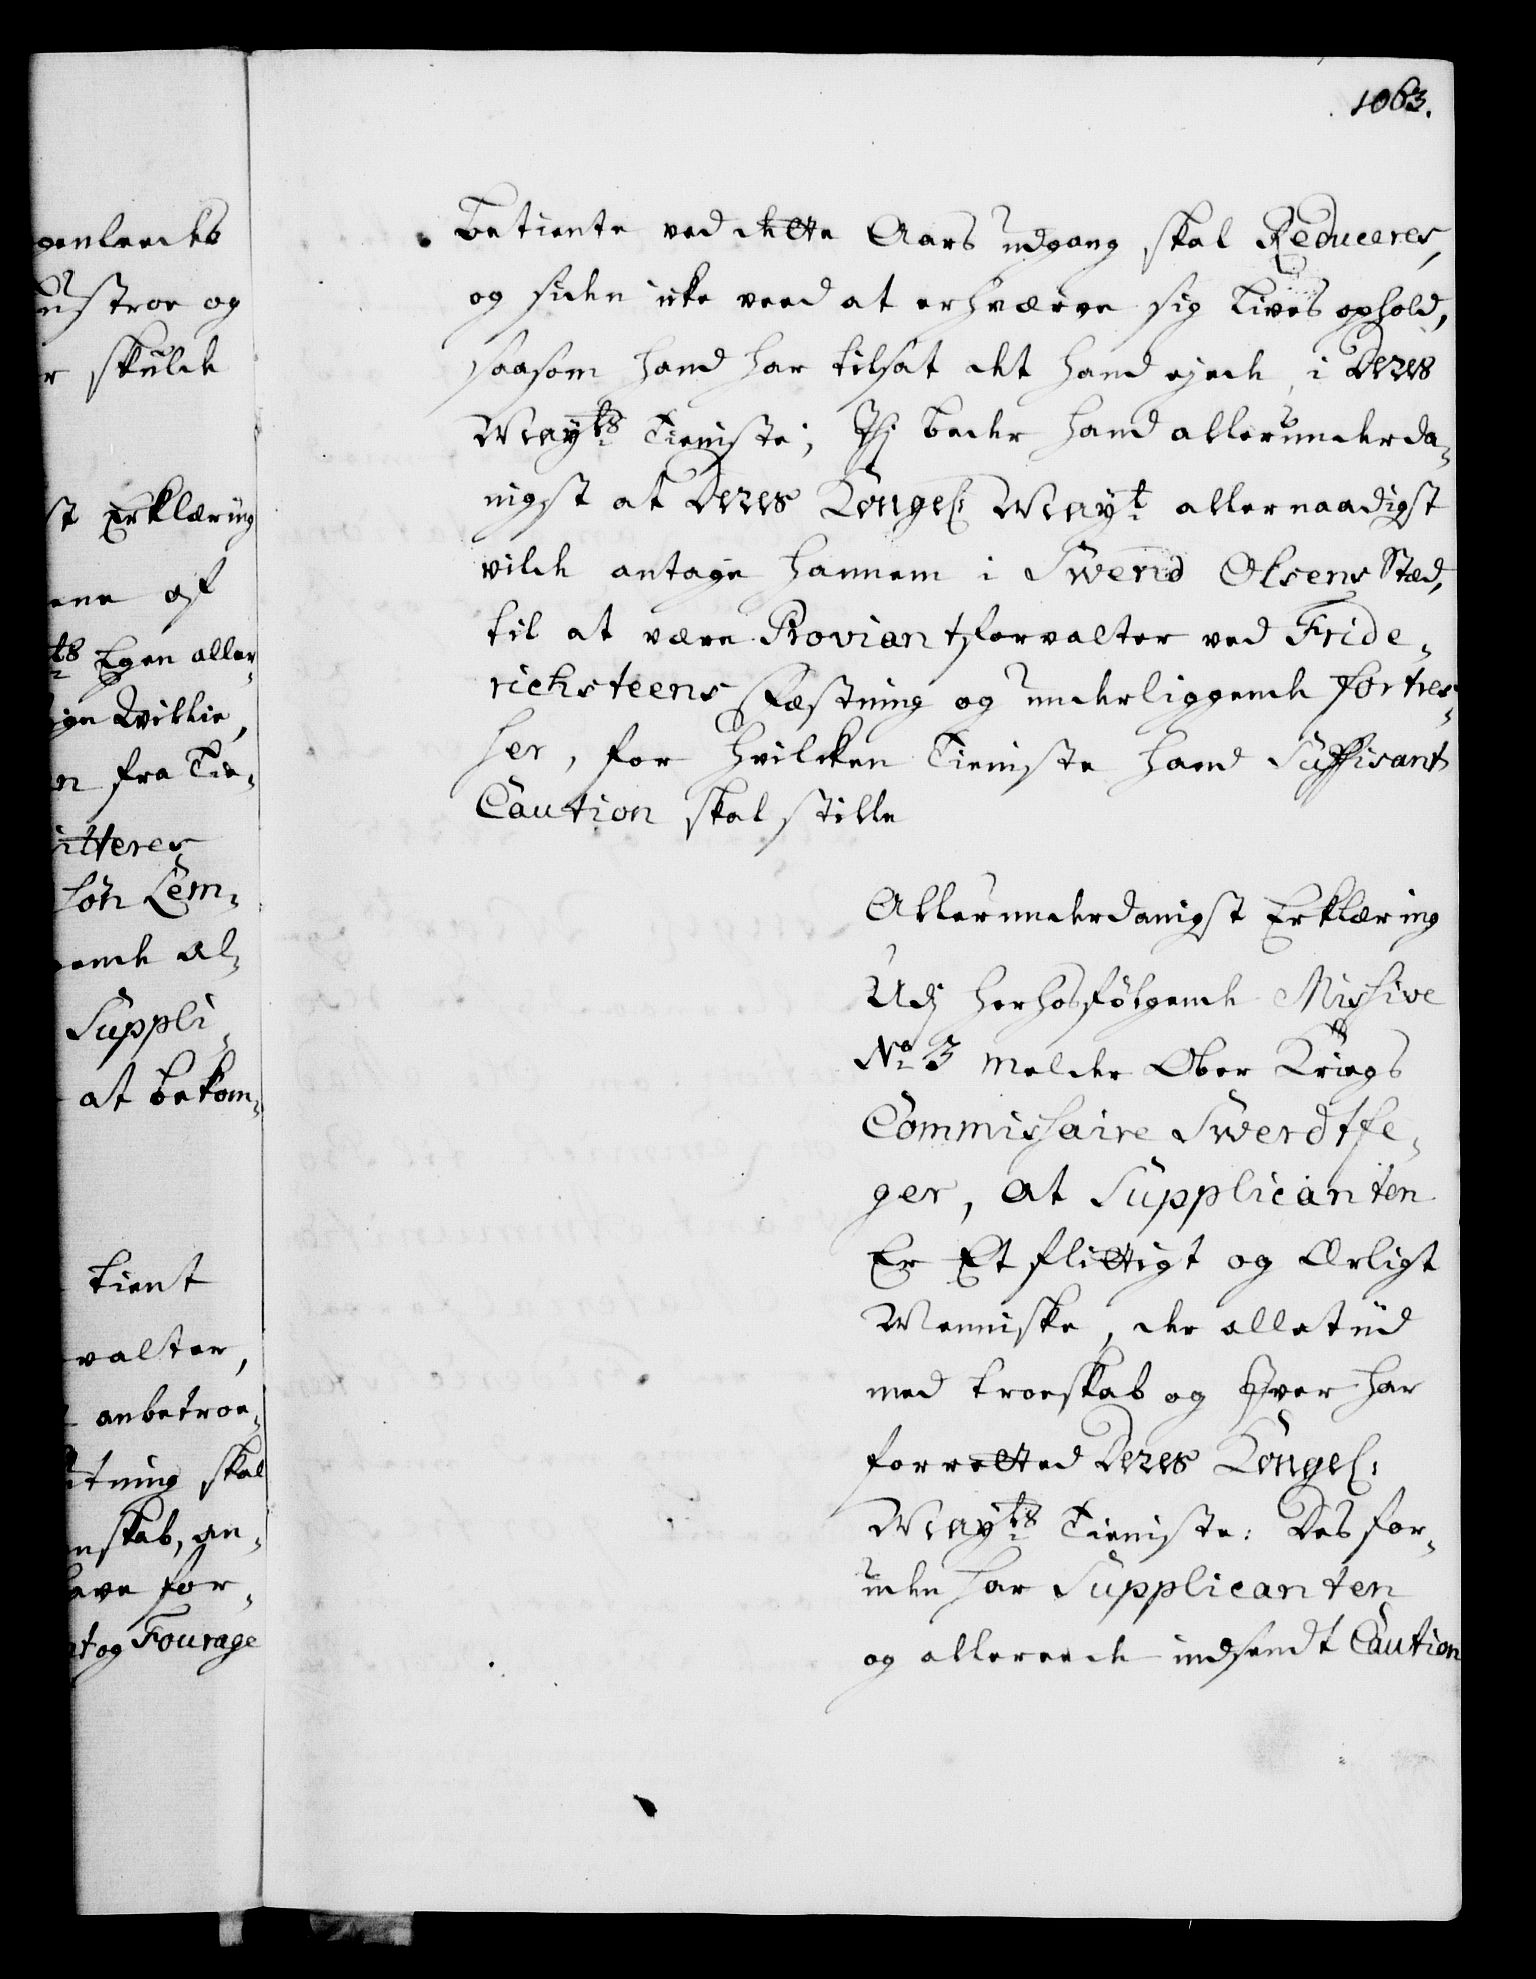 1063.
genleeds
ustroe og
r skulde
st Erklæring
ene af
ts Egen aller-
ige Willie,
n fra Tie-
itteres
Søn Lem-
ende al-
Suppli-
at bekom-
tient
valter,
anbetroe-
tning skal
nskab, an-
ave for-
nt og Fourage
betiente ved dette Aars udgang skal Reduceres,
og siden icke veed at erhværve sig Lives ophold,
saasom hand har tilsat det hand ejede, i Deres
Mayts Tieniste; Thj beder hand allerunderda-
nigst at Deres Kongel: Mayt allernaadigst
vilde antage hannem i Swend Olsens Stæd,
til at være Proviantforvalter ved Fride-
richsteens Fæstning og underliggende Fortres-
ser, for hvilcken Tieniste hand Suffisant
Caution skal stille
Allerunderdanigst Erklæring
Udj herhosfölgende Missive
No 3 melder Ober Krigs
Commissaire Swerdtfe-
ger, at Supplicanten
Er Et flittigt og Ærligt
Menniske, der alletiid
med troeskab og Iver har
forretted Deres Kongel:
Mayts Tieniste: Des for-
uden har Supplicanten
og allereede indsendt Caution